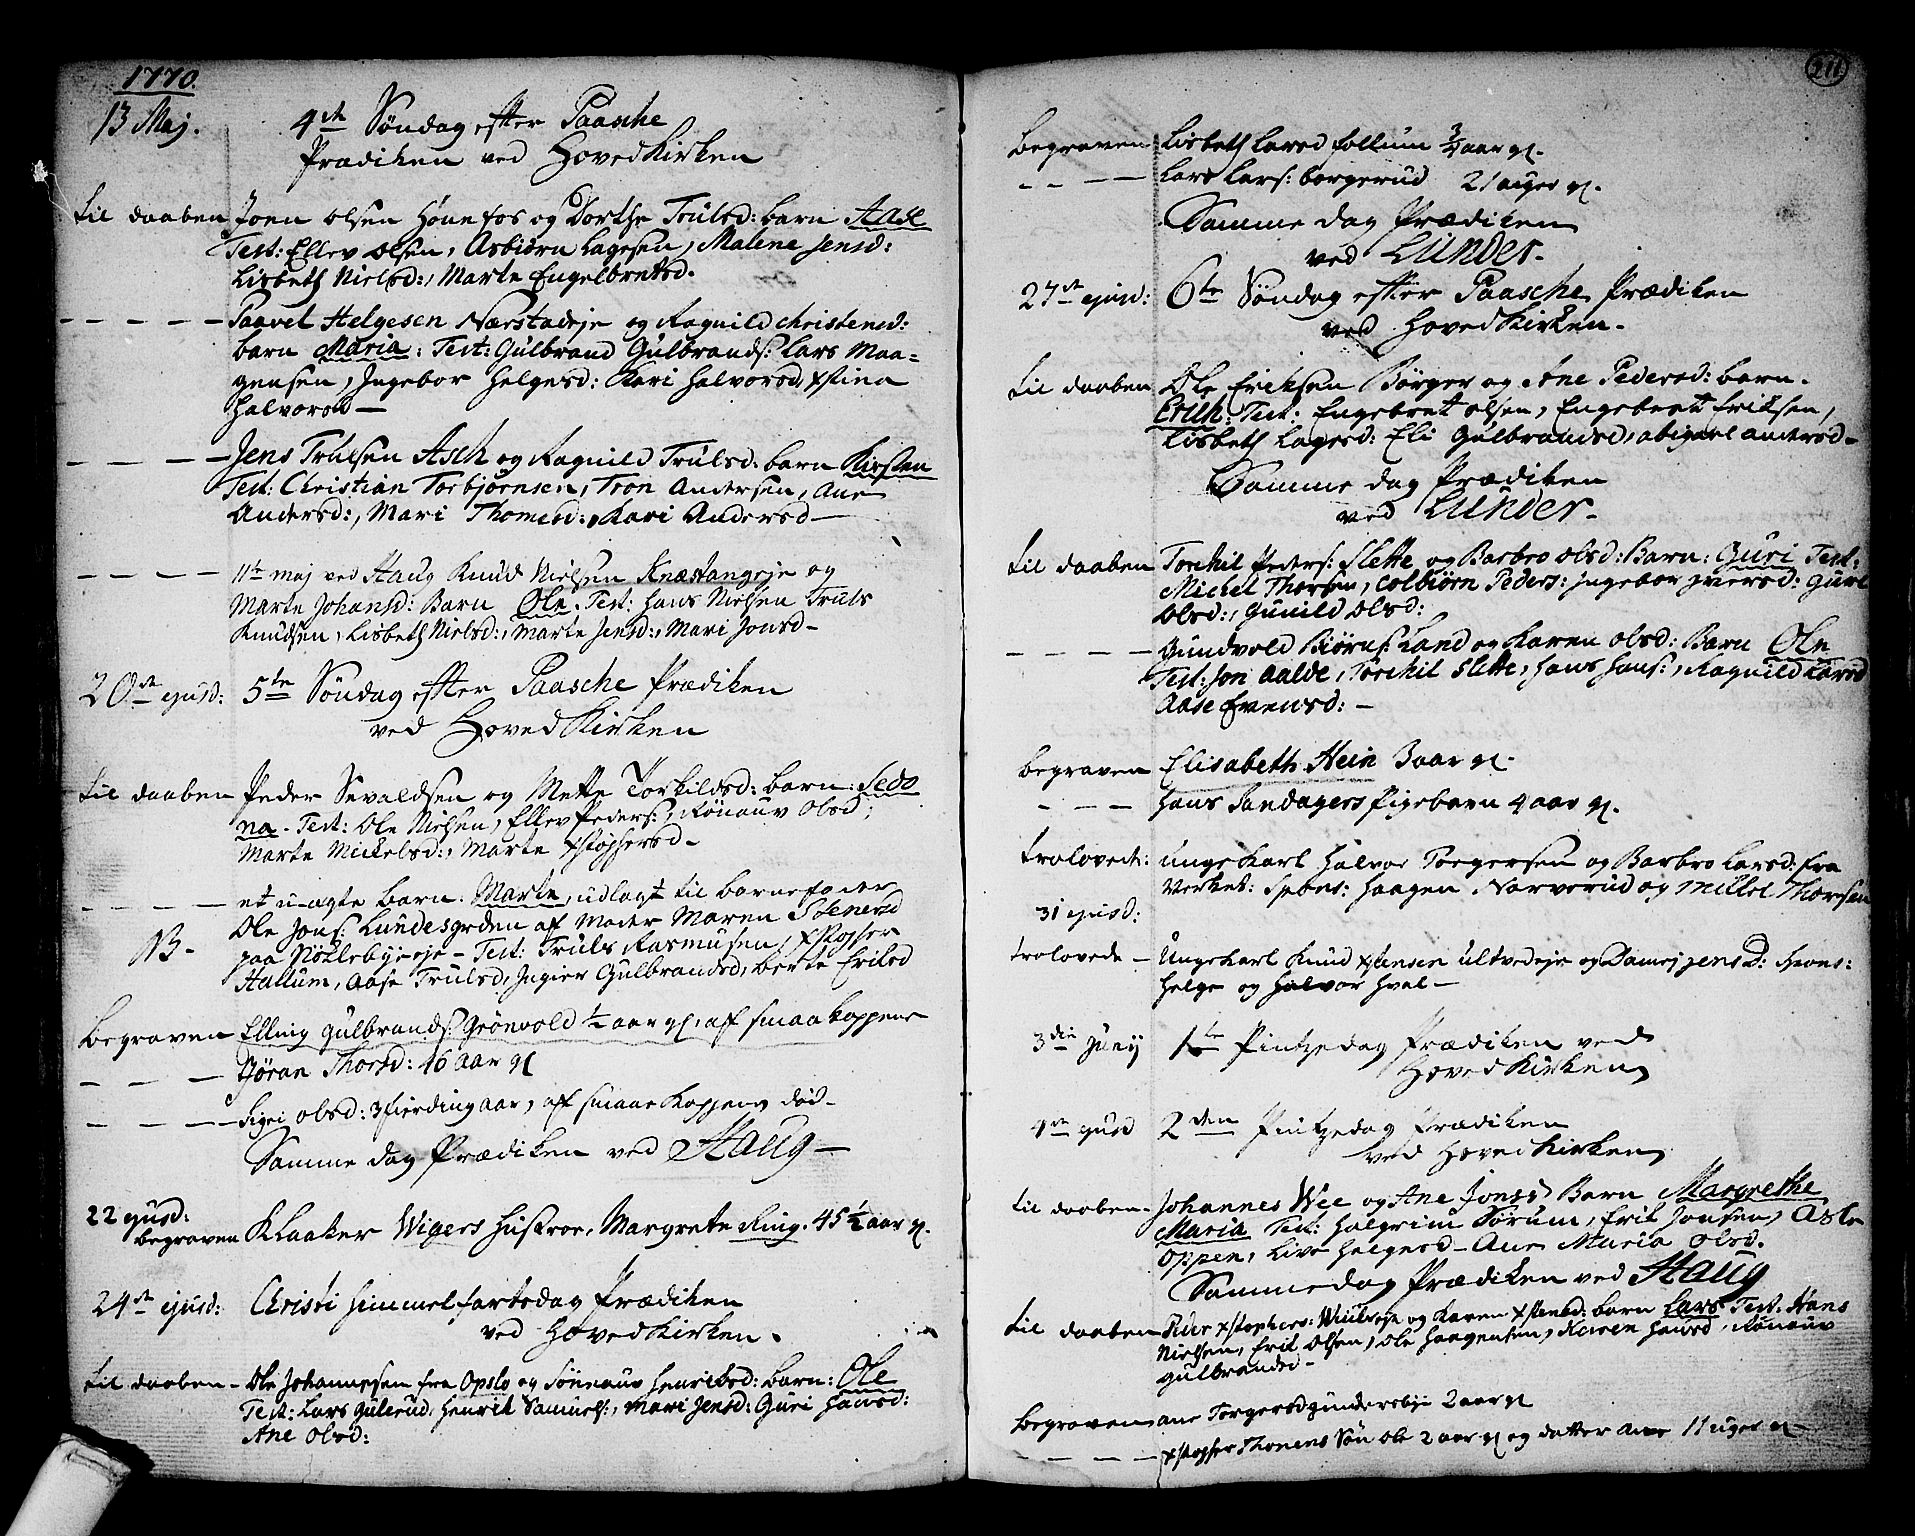 1770.
13 Maj. 4de Søndag efter Paasche
Prædiken ved HovedKirken
til daaben Joen Olsen Hønefos og Dorthe Trulsd: barn Aase
Test: Ellev Olsen, Asbiørn Lagesen, Malene Jensd:
Lisbeth Nielsd:, Marte Engelbretsd.
– – – – Paavel Helgesen Nærstadeje og Ragnild Christensd:
barn Maria: Test: Gulbrand Gulbrands: Lars Maa=
gensen, Ingebor Helgesd: Kari Halvorsd, Xstina
Halvorsd –
– – – – Jens Trulsen Ask og Ragnild Trulsd: barn Kirsten
Test: Christian Torbjørnsen, Tron Andersen, Ane
Andersd:, Mari Thomesd:, Kari Andersd –
– – – – 11te maj ved Haug Knud Nielsen Knæstangeje og
Marte Johansd: Barn Ole. Test: Hans Nielsen Truls
Knudsen, Lisbeth Nielsd:, Marte Jensd:, Mari Jonsd –
20de ejusd: 5te Søndag efter Paasche Prædiken
ved HovedKirken
til daaben Peder Sevaldsen og Mette Torkildsd: barn: Sedo
na. Test: Ole Nielsen, Ellev Peders:, Rønauv Olsd,
Marte Mickelsd:, Marte Xstophersd –
– – – – et u-ægte barn: Marte, udlagt til barnefader
Ole Jons: Lundesgrden af Moder Maren Stenersd
NB – paa Nøklebyeeje – Test: Truls Rasmusen, Xstopher
Hallum, Aase Trulsd, Ingier Gulbrandsd, berte Eriksd
Begraven Elling Gulbrands: Grønvold ½ aar gl. af smaakoppene
– – – Jøran Thorsd: 16 aar gl
– – – – Sigri Olsd: 3fierding aar, af smaaekoppene død –
Samme dag Prædiken ved Haug –
22 ejusd:
begraven Klaaker Wigers Hustroe, Margrete Ring. 45½ aar gl.
24de ejusd: Christi Himmelfartsdag Prædiken
ved HovedKirken.
til daaben – Ole Johannesen fra Opslo og Sønnauv Henriksd: barn: Ole
Test: Lars Gulerud, Henrik Samuels:, Mari Jensd: Guri Hansd:
Ane Olsd:
211
Begraven Lisbeth Larsd Follum ¾ aar gl.
– – – – Lars Lars: Borgerud 21 uger gl.
Samme dag Prædiken
ved Lunder.
27de ejusd: 6te Søndag efter Paasche Prædiken
ved HovedKirken.
til daaben Ole Ericksen Börger og Ane Pedersd: barn.
Erich: Test: Engebret Olsen, Engebret Eriksen,
Lisbeth Lagesd: Eli Gulbrandsd, abigael andersd –
Samme dag Prædiken
ved Lunder.
til daaben Torchil Peders: Slette og Barbro Olsd: Barn: Guri Test:
Michel Thorsen, Colbiørn Peders: Ingebor Iversd: Guri
Olsd:, Gunild Olsd:
– – – – Gundvold Biørns: Land og Karen Olsd: Barn Ole
Test: Jon Aalde, Torchil Slette, Hans Hans:, Ragnild Larsd
Aase Evensd: –
begraven Elisabeth Hein 3 aar gl.
– – – Hans Sandagers Pigebarn 4 aar gl.
troloved: ungekarl Halvor Torgersen og Barbro Larsd: fra
Verket: Spons: Haagen Narverud og Mikkel Thorsen
31 ejusd:
trolovede – Ungekarl Knud Xstensen Ultvedeje og Jensd: Spons:
Helge og Halvor Hval –
3die Junij 1te Pintzedag Prædiken ved
HovedKirken
4de ejusd 2den Pintzedag Prædiken
ved HovedKirken
til daaben – Johannes Wee og Ane Jonsd Barn Margrethe
Maria Test: Halgrim Sørum, Erik Jonsen, Asle
Oppen, Live Helgesd – Ane Maria Olsd.
Samme dag Prædiken ved Haug
til daaben Peder Xstophers: og Karen Xstensd: barn Lars Test: Hans
Nielsen, Erik Olsen, Ole Haagensen, Karen Hansd, Rønauv
Gulbrandsd –
Begraven ane Torgersd Gundersbye 2 aar gl
– – – – Xstopher Thonens Søn Ole 2 aar gl og datter Ane 11 uger gl –